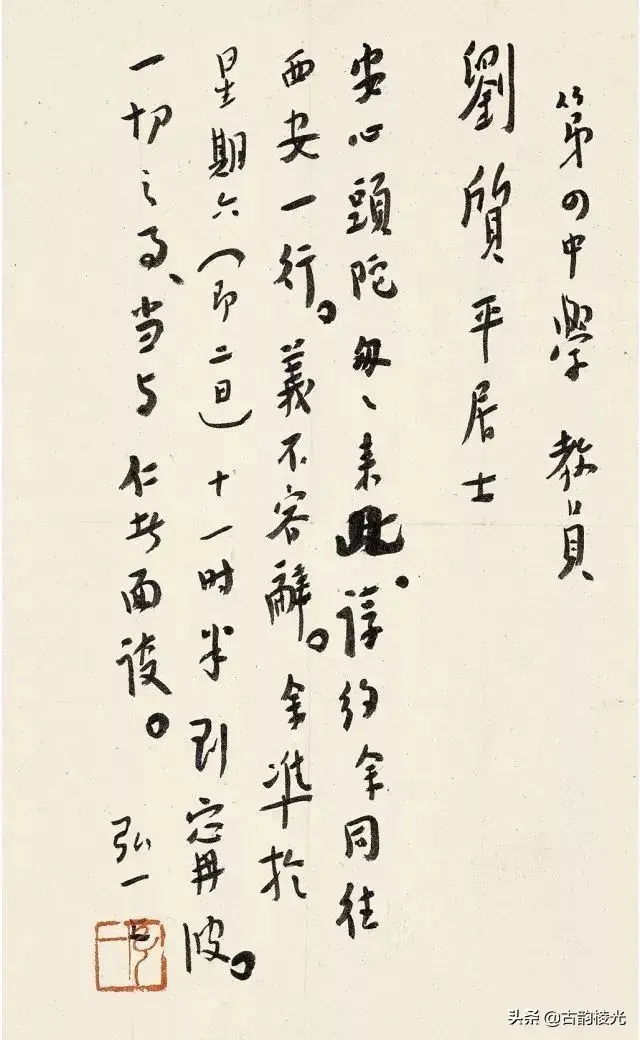 第四中學 教員
劉質平居士
安心頭陀匆〻来此。諄約余同往
西安一行。義不容辭。余準於
星期六（即二日）十一时半到甯波。
一切之事、当与仁者面談。
弘一
头条 @古韵棱光